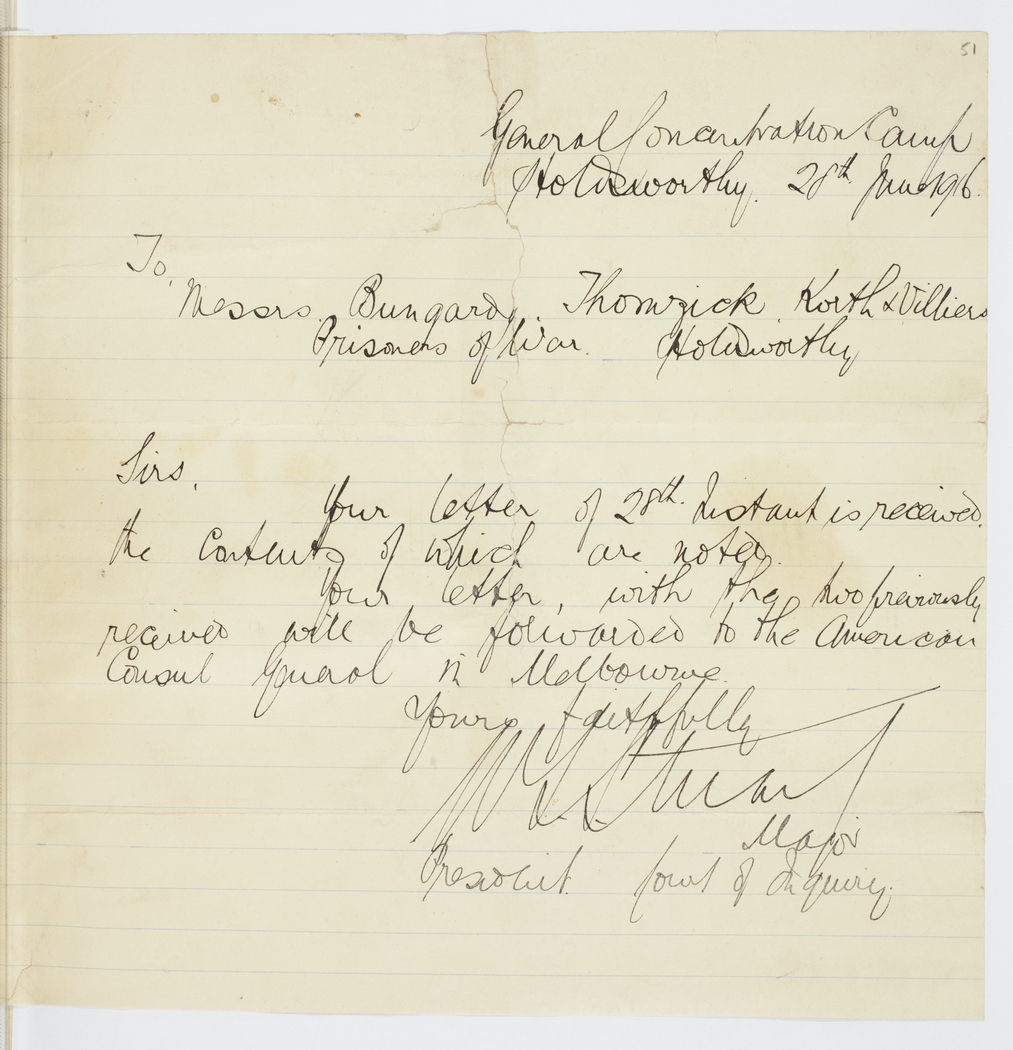 51
General Concentration Camp
Holdsworthy. 28th June 1916.
To,
Messrs. Bungardy. Thomzick. Korth & Villiers
Prisoners of War. Holdsworthy
Sirs,
Your letter of 28th Instant is received,
the contents of which are noted.
Your letter, with the two previously
received will be forwarded to the American
Consul General in Melbourne.
Yours faithfully
Stuart
Major
President. Court of Inquiry.